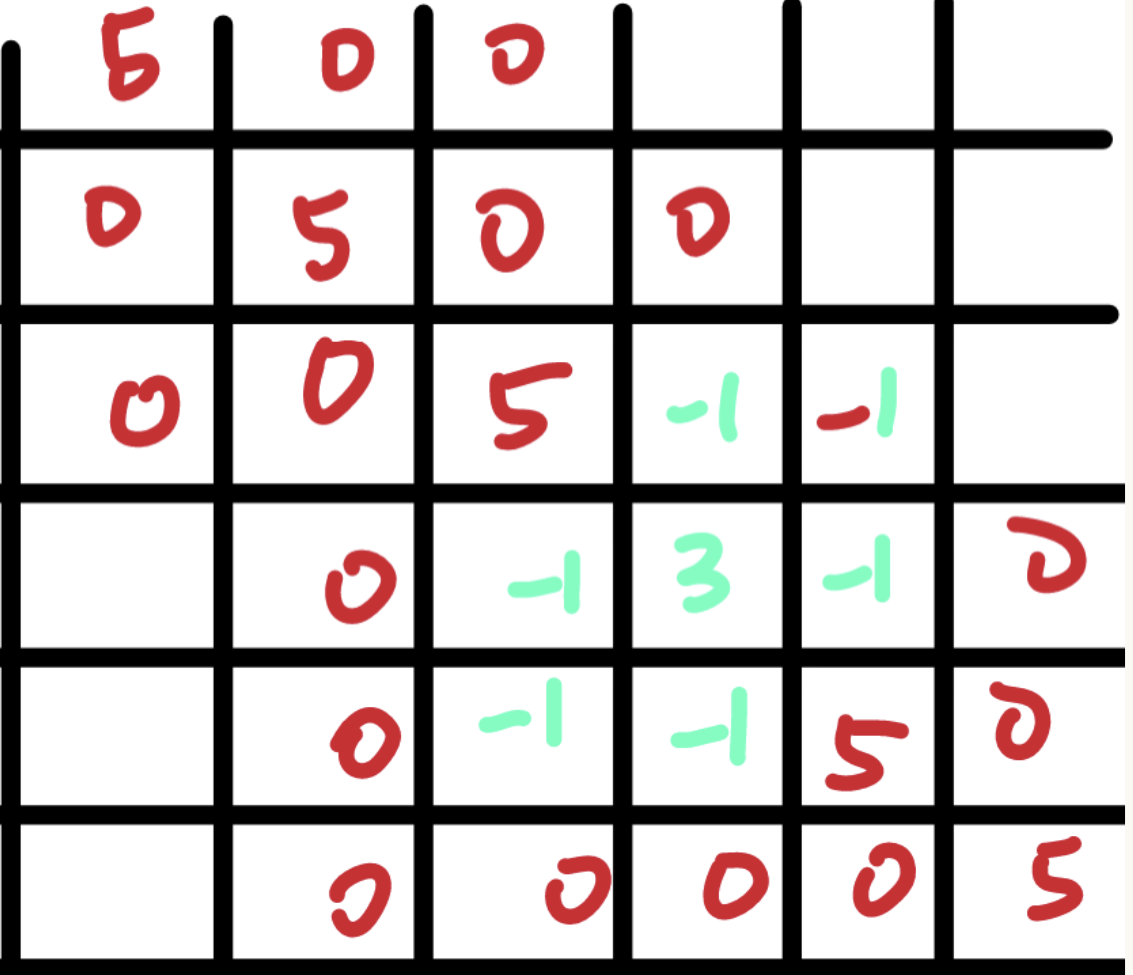 5 0 0
0 5 0 0
0 0 5 -1 -1
0 -1 3 -1 0
0 -1 -1 5 0
0 0 0 0 5